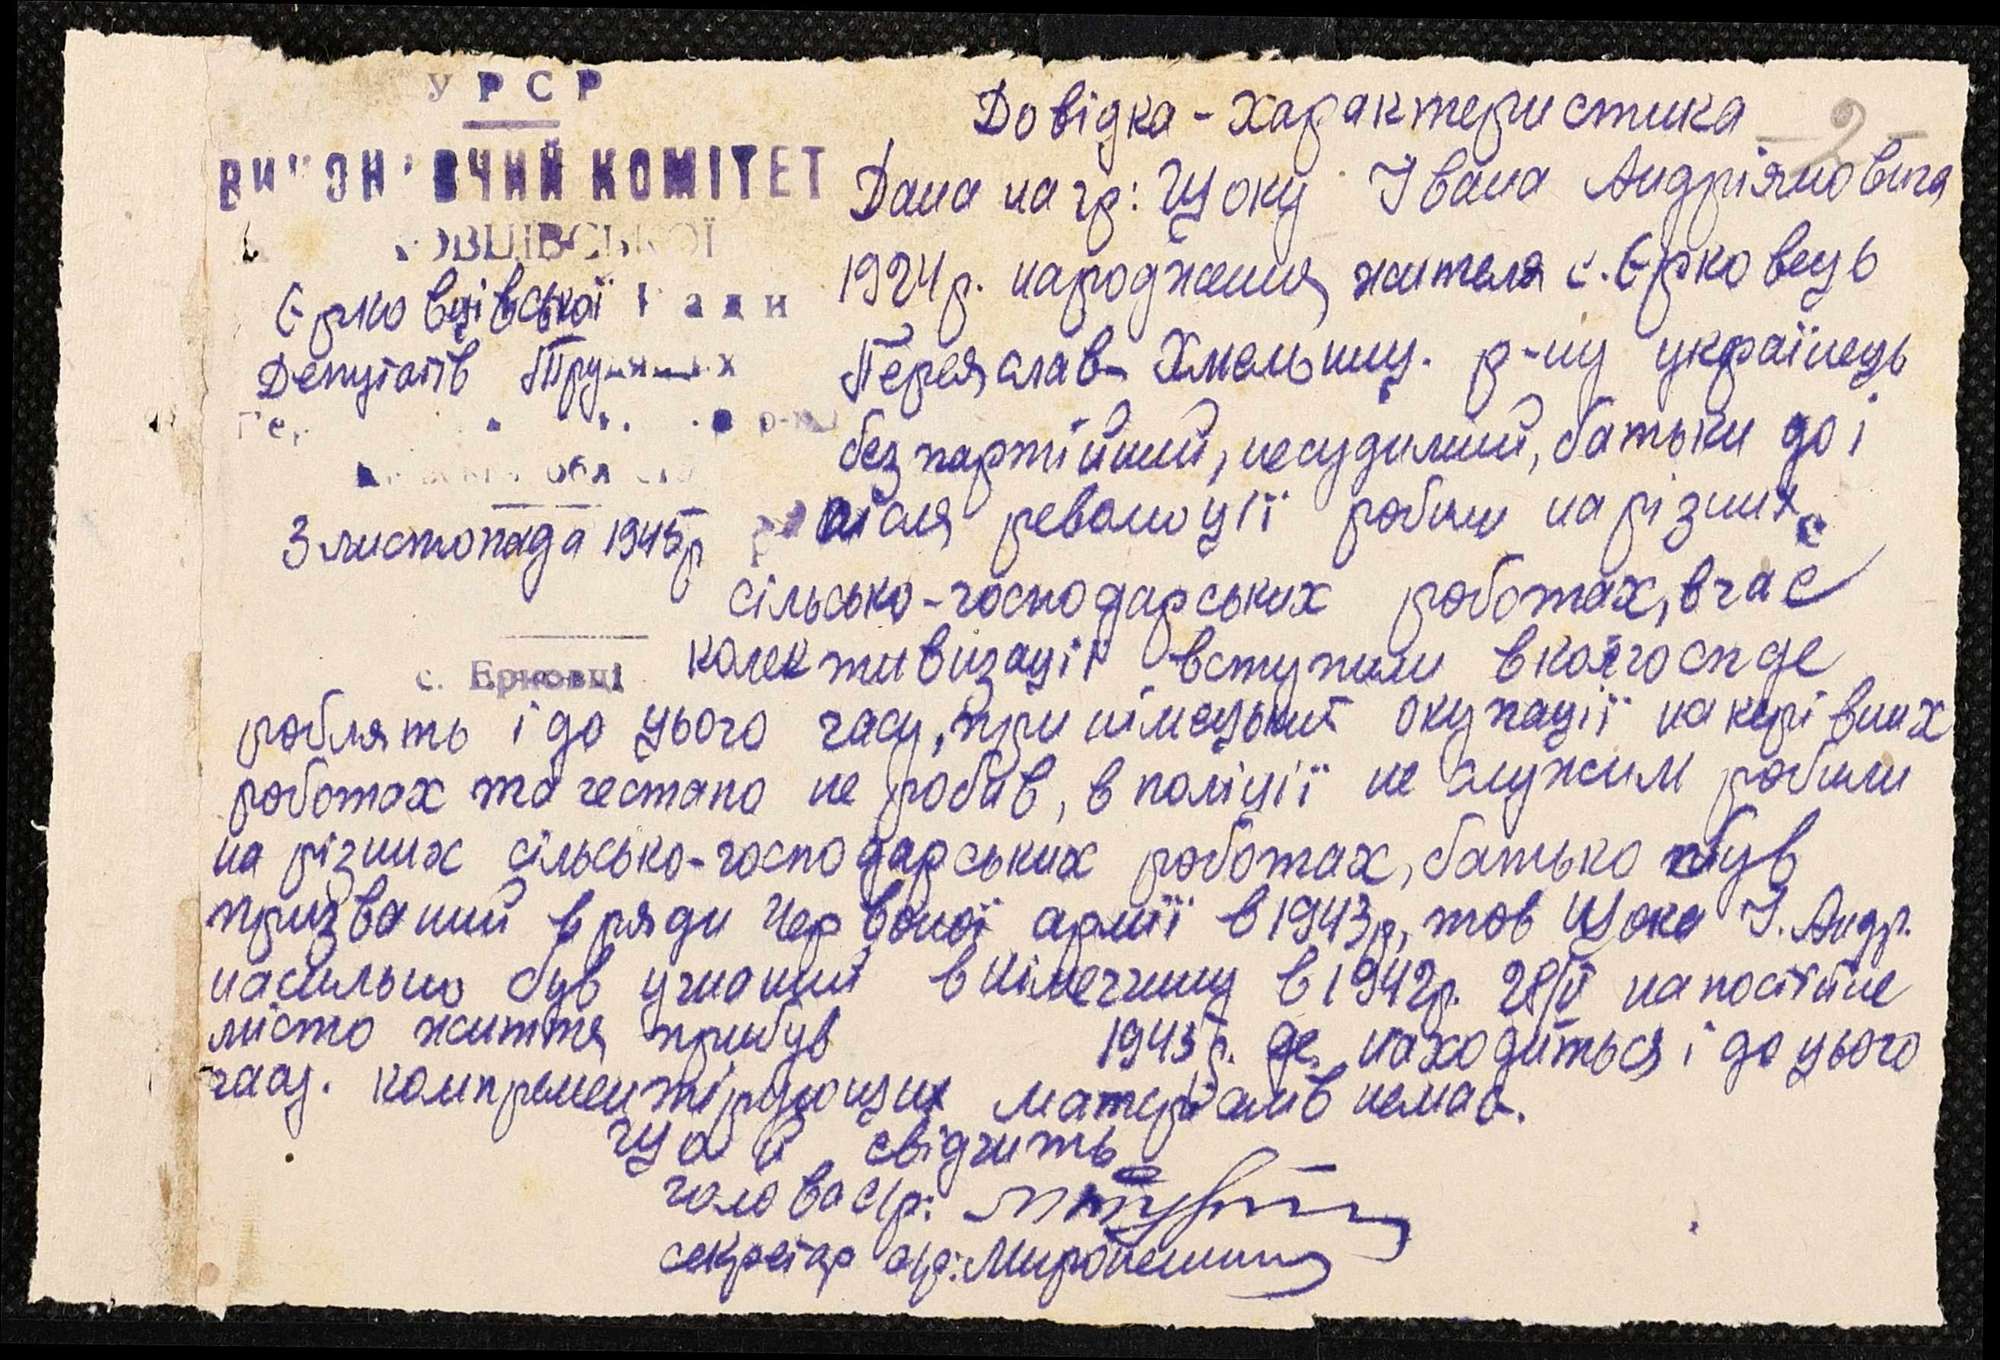 УРСР
ВИКОНАВЧИЙ КОМІТЕТ
ОВЦІВСЬКОЇ
Єрковцівської Ради
Депутатів Трудящих
р-ну
обл
3 листопада 1945р
с. Ерковці
2
Довідка - характеристика
Дана на гр: Щоку Івана Андріяновича
1924р. народження жителя с. Єрковець
Переяслав-Хмельниц. р-ну українець
безпартійний, несудимий, батьки до і
після революції робили на різних
сільсько-господарських роботах, в час
колективизації вступили в колгосп де
роблять і до цього часу, при німецькій окупації на керівних
роботах та гестапо не робив, в поліції не служим робили
на різних сільсько-господарських роботах, батько був
призваний в ряди Червоної армії в 1943р, тов Щока І. Андр.
насильно був угнаний в Німеччину в 1942р. 28/V на постійне
місто життя прибув 1945р. де находиться і до цього
часу. компрометіруюіцих матеріалів немає.
Що й свідчить
голова с/р:
секретар с/р: